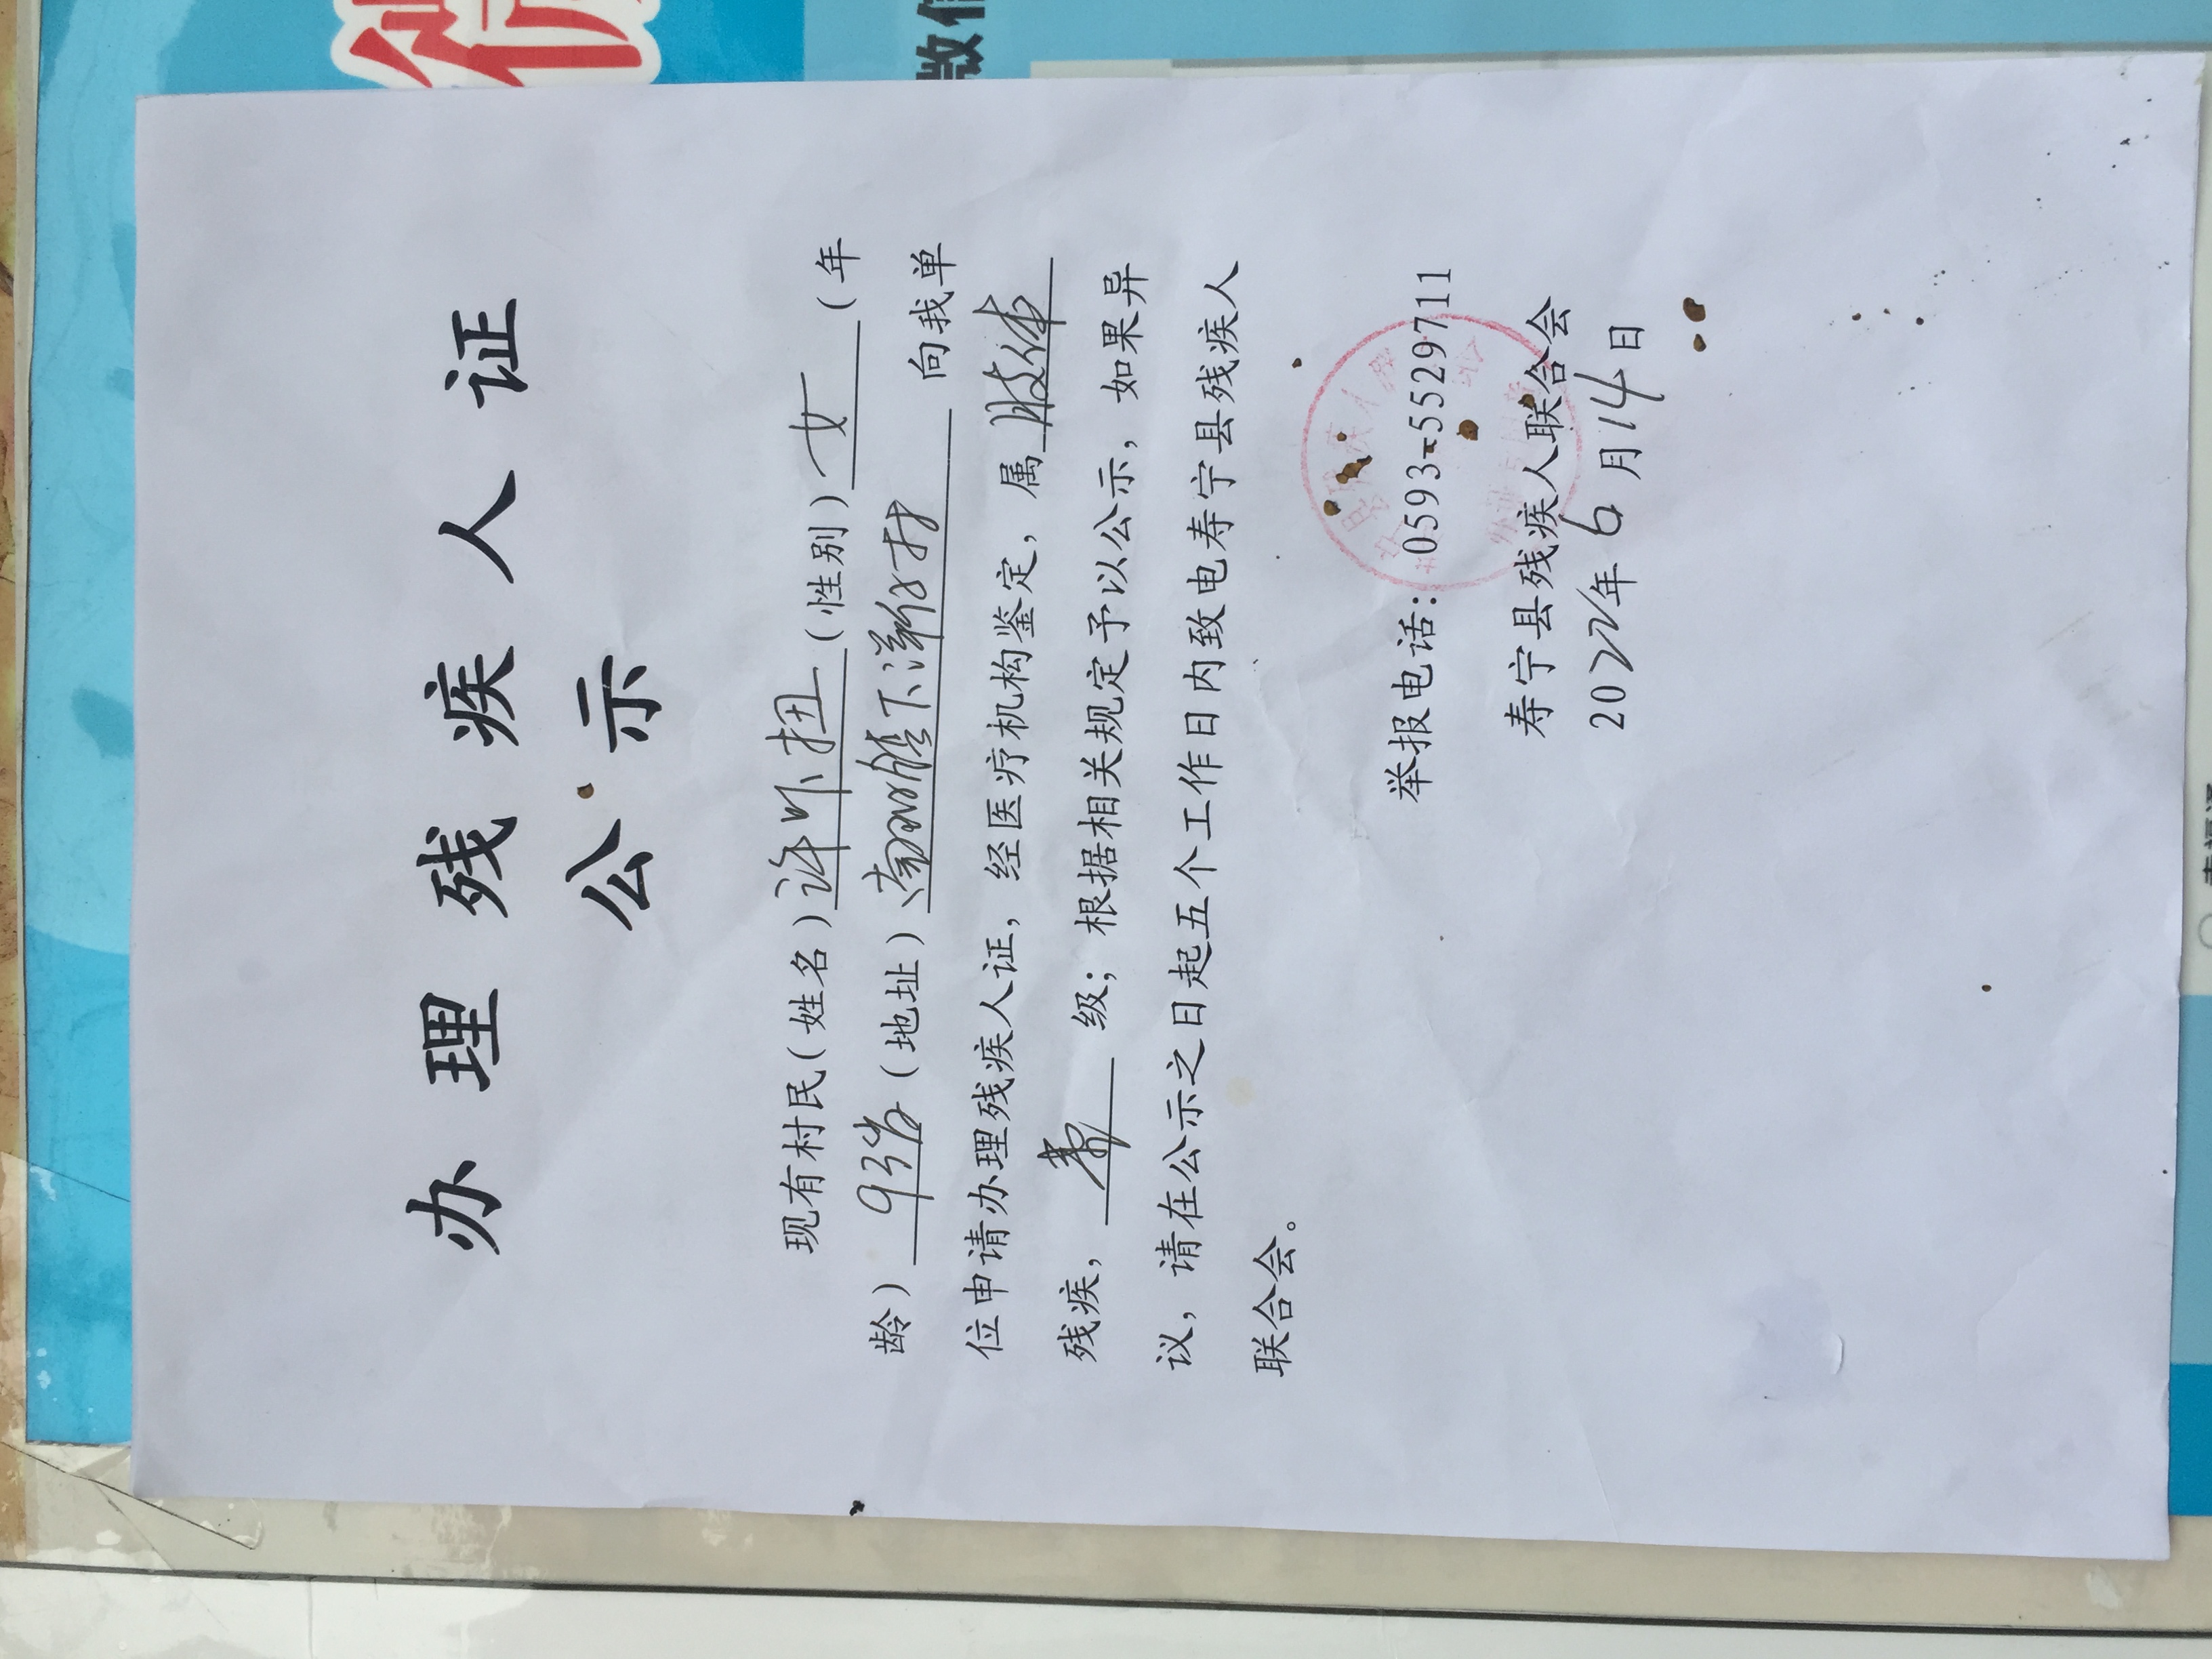 微信
办理残疾人证
公示
现有村民(姓名)许外扭(性别)女(年
龄)93岁(地址)南阳下洋村向我单
位申请办理残疾人证,经医疗机构鉴定,属肢体
残疾,级;根据相关规定予以公示,如果异
议,请在公示之日起五个工作日内致电寿宁县残疾人
联合会。
举报电话:0593-5529711
寿宁县残疾人联合会
2022年6月14日